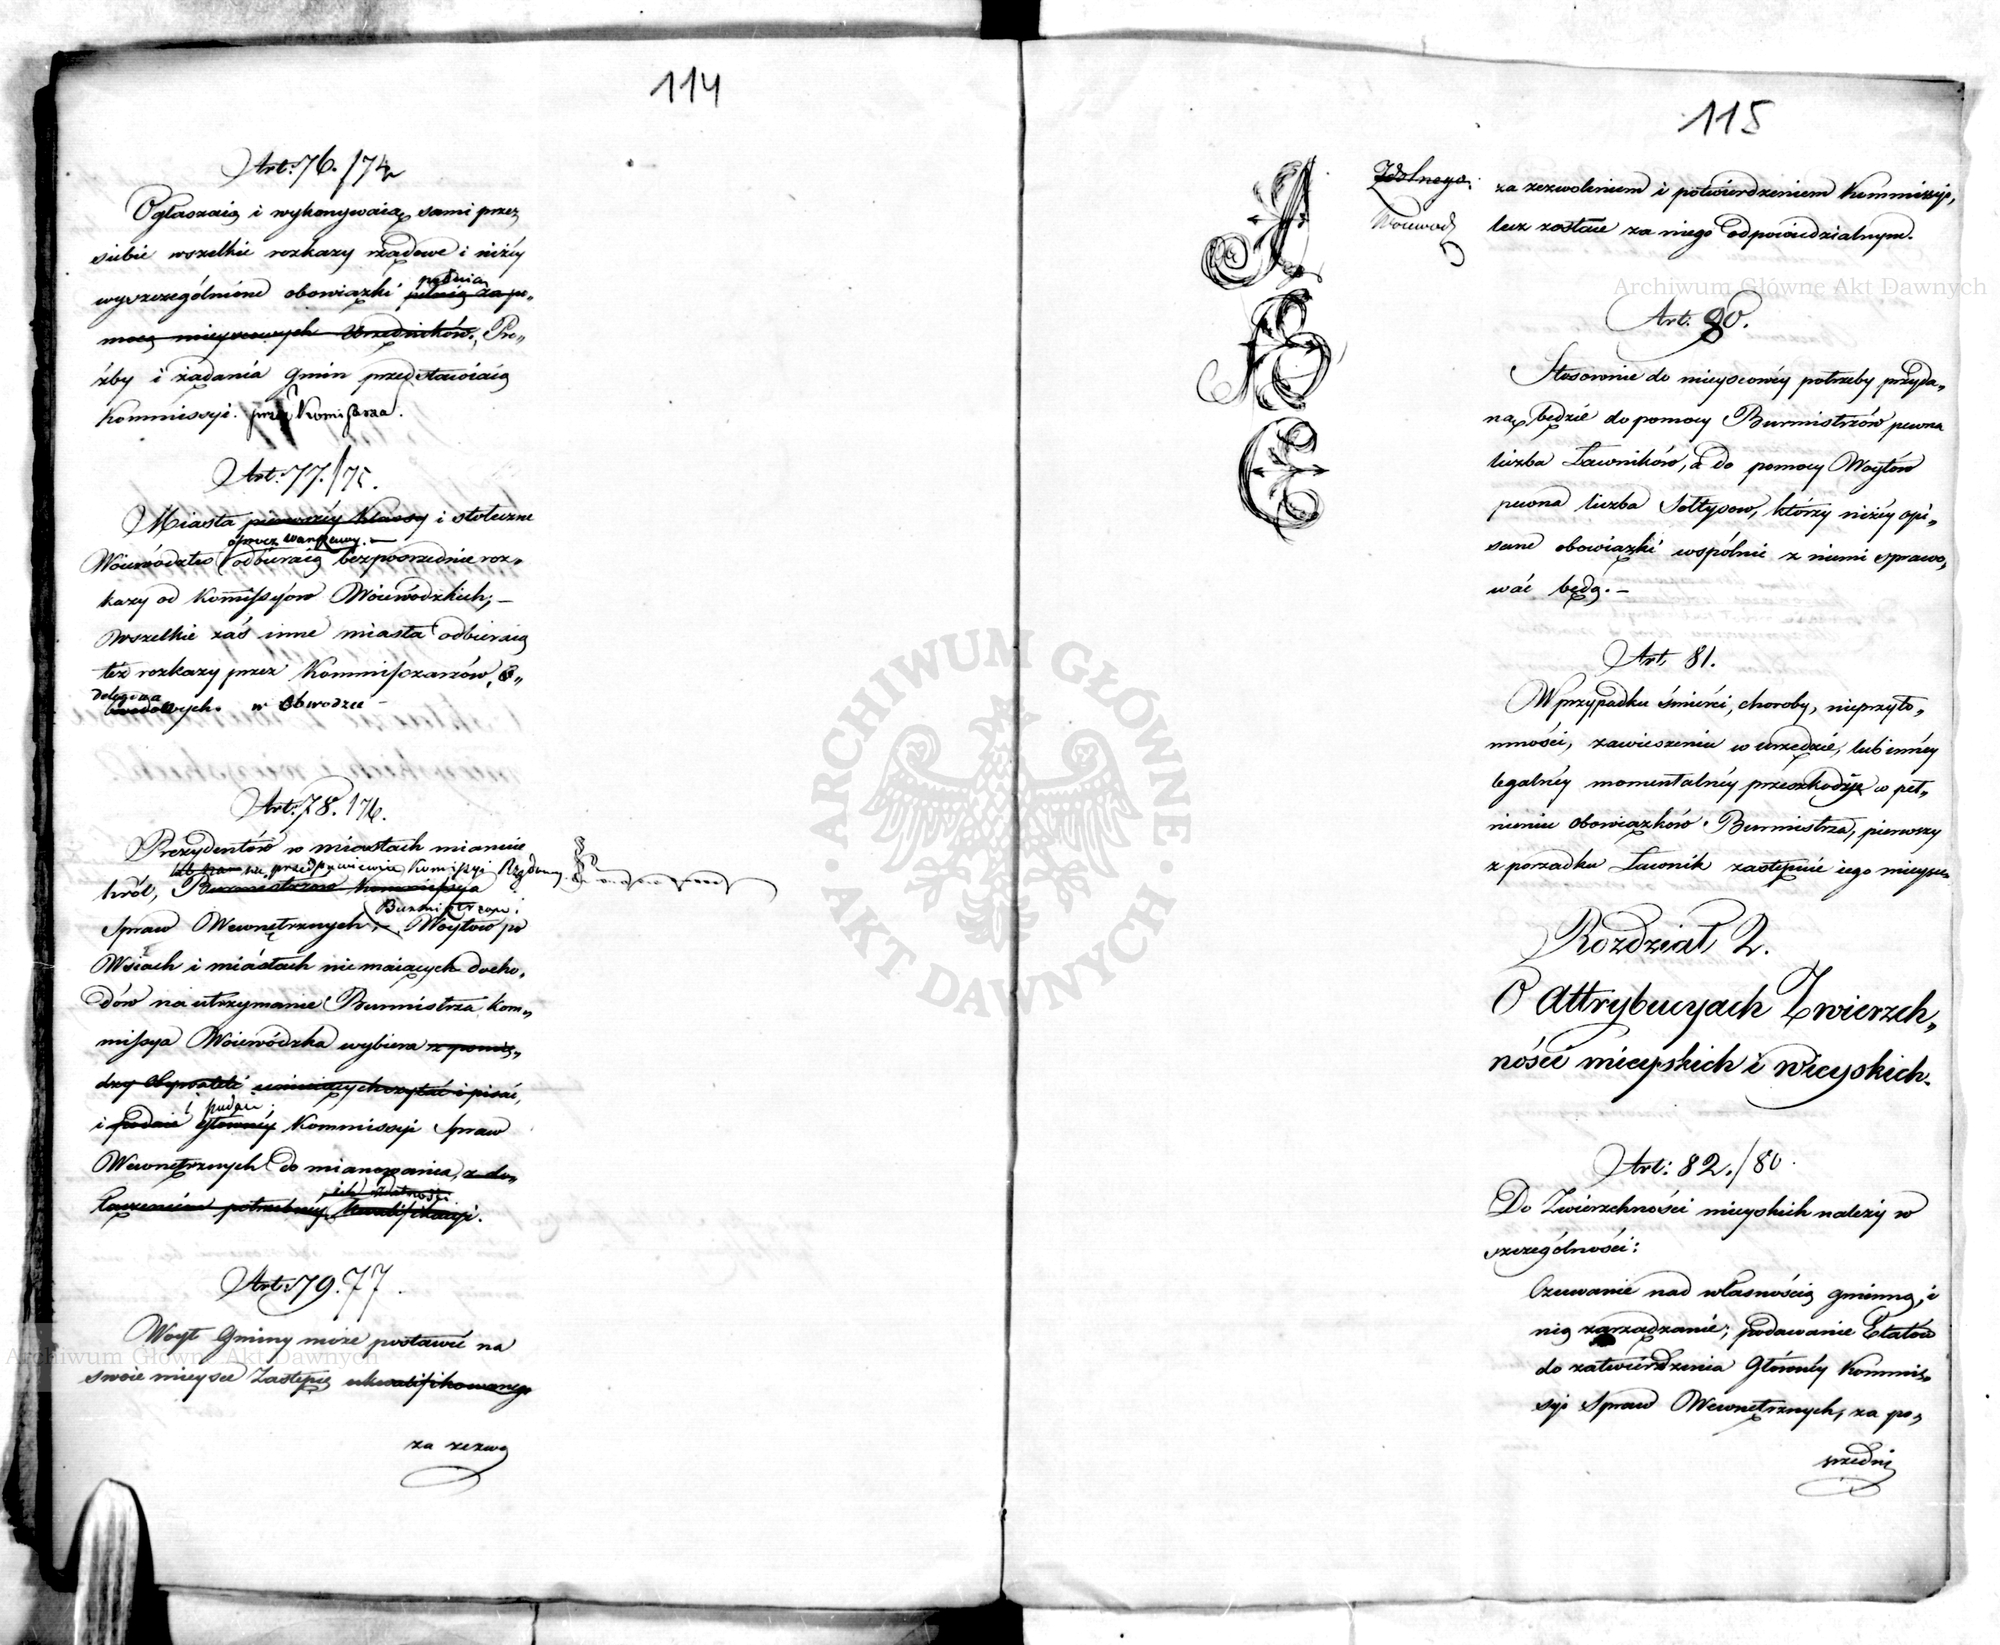 114
Art: 76. /74
Ogłaszaią i wykonywaią sami przez
siebie wszelkie rozkazy rządowe i niżéy
wyszczególnione obowiązki pełnią za po„
pełnią
mocą mieyscowych Urzędników. Pro„
źby i żądania Gmin przedstawiaią
Kommissyi. przez Komissarza.
Art: 77. /75.
Miasta pierwszéy klassy i stołeczne
oprocz Warszawy.
Woiewództw odbieraią bezpośrednie roz„
kazy od Kommissyów Woiewódzkich; —
Wszelkie zaś inne miasta odbieraią
też rozkazy przez Kommissarzów, O„
delegowa
bwodowych. w Obwodzie —
Art: 78. /76.
Prezydentów w miastach mianuie
na przedstawienie Komissyi Rządowey
król, Burmistrzów Kommissya
Burmistrzow i
Spraw Wewnętrznych, — Woytów po
Wsiach i miastach nie maiących docho„
dów na utrzymanie Burmistrza Kom„
missya Woiewódzka wybiera z pomię„
dzy Obywateli umieiących czytać i pisać,
i podaie
i podaie Głównéy Kommissyi Spraw
Wewnętrznych do mianowania, z do„
ich zdatności
łączeniem potrzebnéy kwalifikacyi.
Art: 79. 77
Woyt Gminy może postawić na
swoie mieysce Zastępcę ukwalifikowanego
za zezwo
115
Zdolnego.
Woiewodz
za zezwoleniem i potwierdzeniem Kommissyi,
lecz zostaie za niego odpowiedzialnym.
Art: 80.
Stosownie do mieyscowéy potrzeby przyda„
ną będzie do pomocy Burmistrzów pewna
liczba Ławników, a do pomocy Woytów
pewna liczba Sołtysow, którzy niżéy opi„
sane obowiązki wspólnie z niemi sprawo„
wać będą. —
Art. 81.
W przypadku śmierci, choroby, nieprzyto„
mności, zawieszenia w urzędzie, lub innéy
legalnéy momentalnéy przeszkodzie w peł„
nieniu obowiązków Burmistrza, pierwszy
z porządku Ławnik zastępuie iego mieysce
Rozdział 2.
O Attrybucyach Zwierzch„
ności mieyskich i wieyskich.
Art: 82. /80.
Do Zwierzchności mieyskich należy w
szczególności:
Czuwanie nad własnością gminną, i
nią zarządzanie; podawanie Etatów
do zatwierdzenia Głównéy Kommis„
syi Spraw Wewnętrznych, za po„
średni
ARCHIWUM GŁÓWNE · AKT DAWNYCH ·
Archiwum Główne Akt Dawnych
Archiwum Główne Akt Dawnych